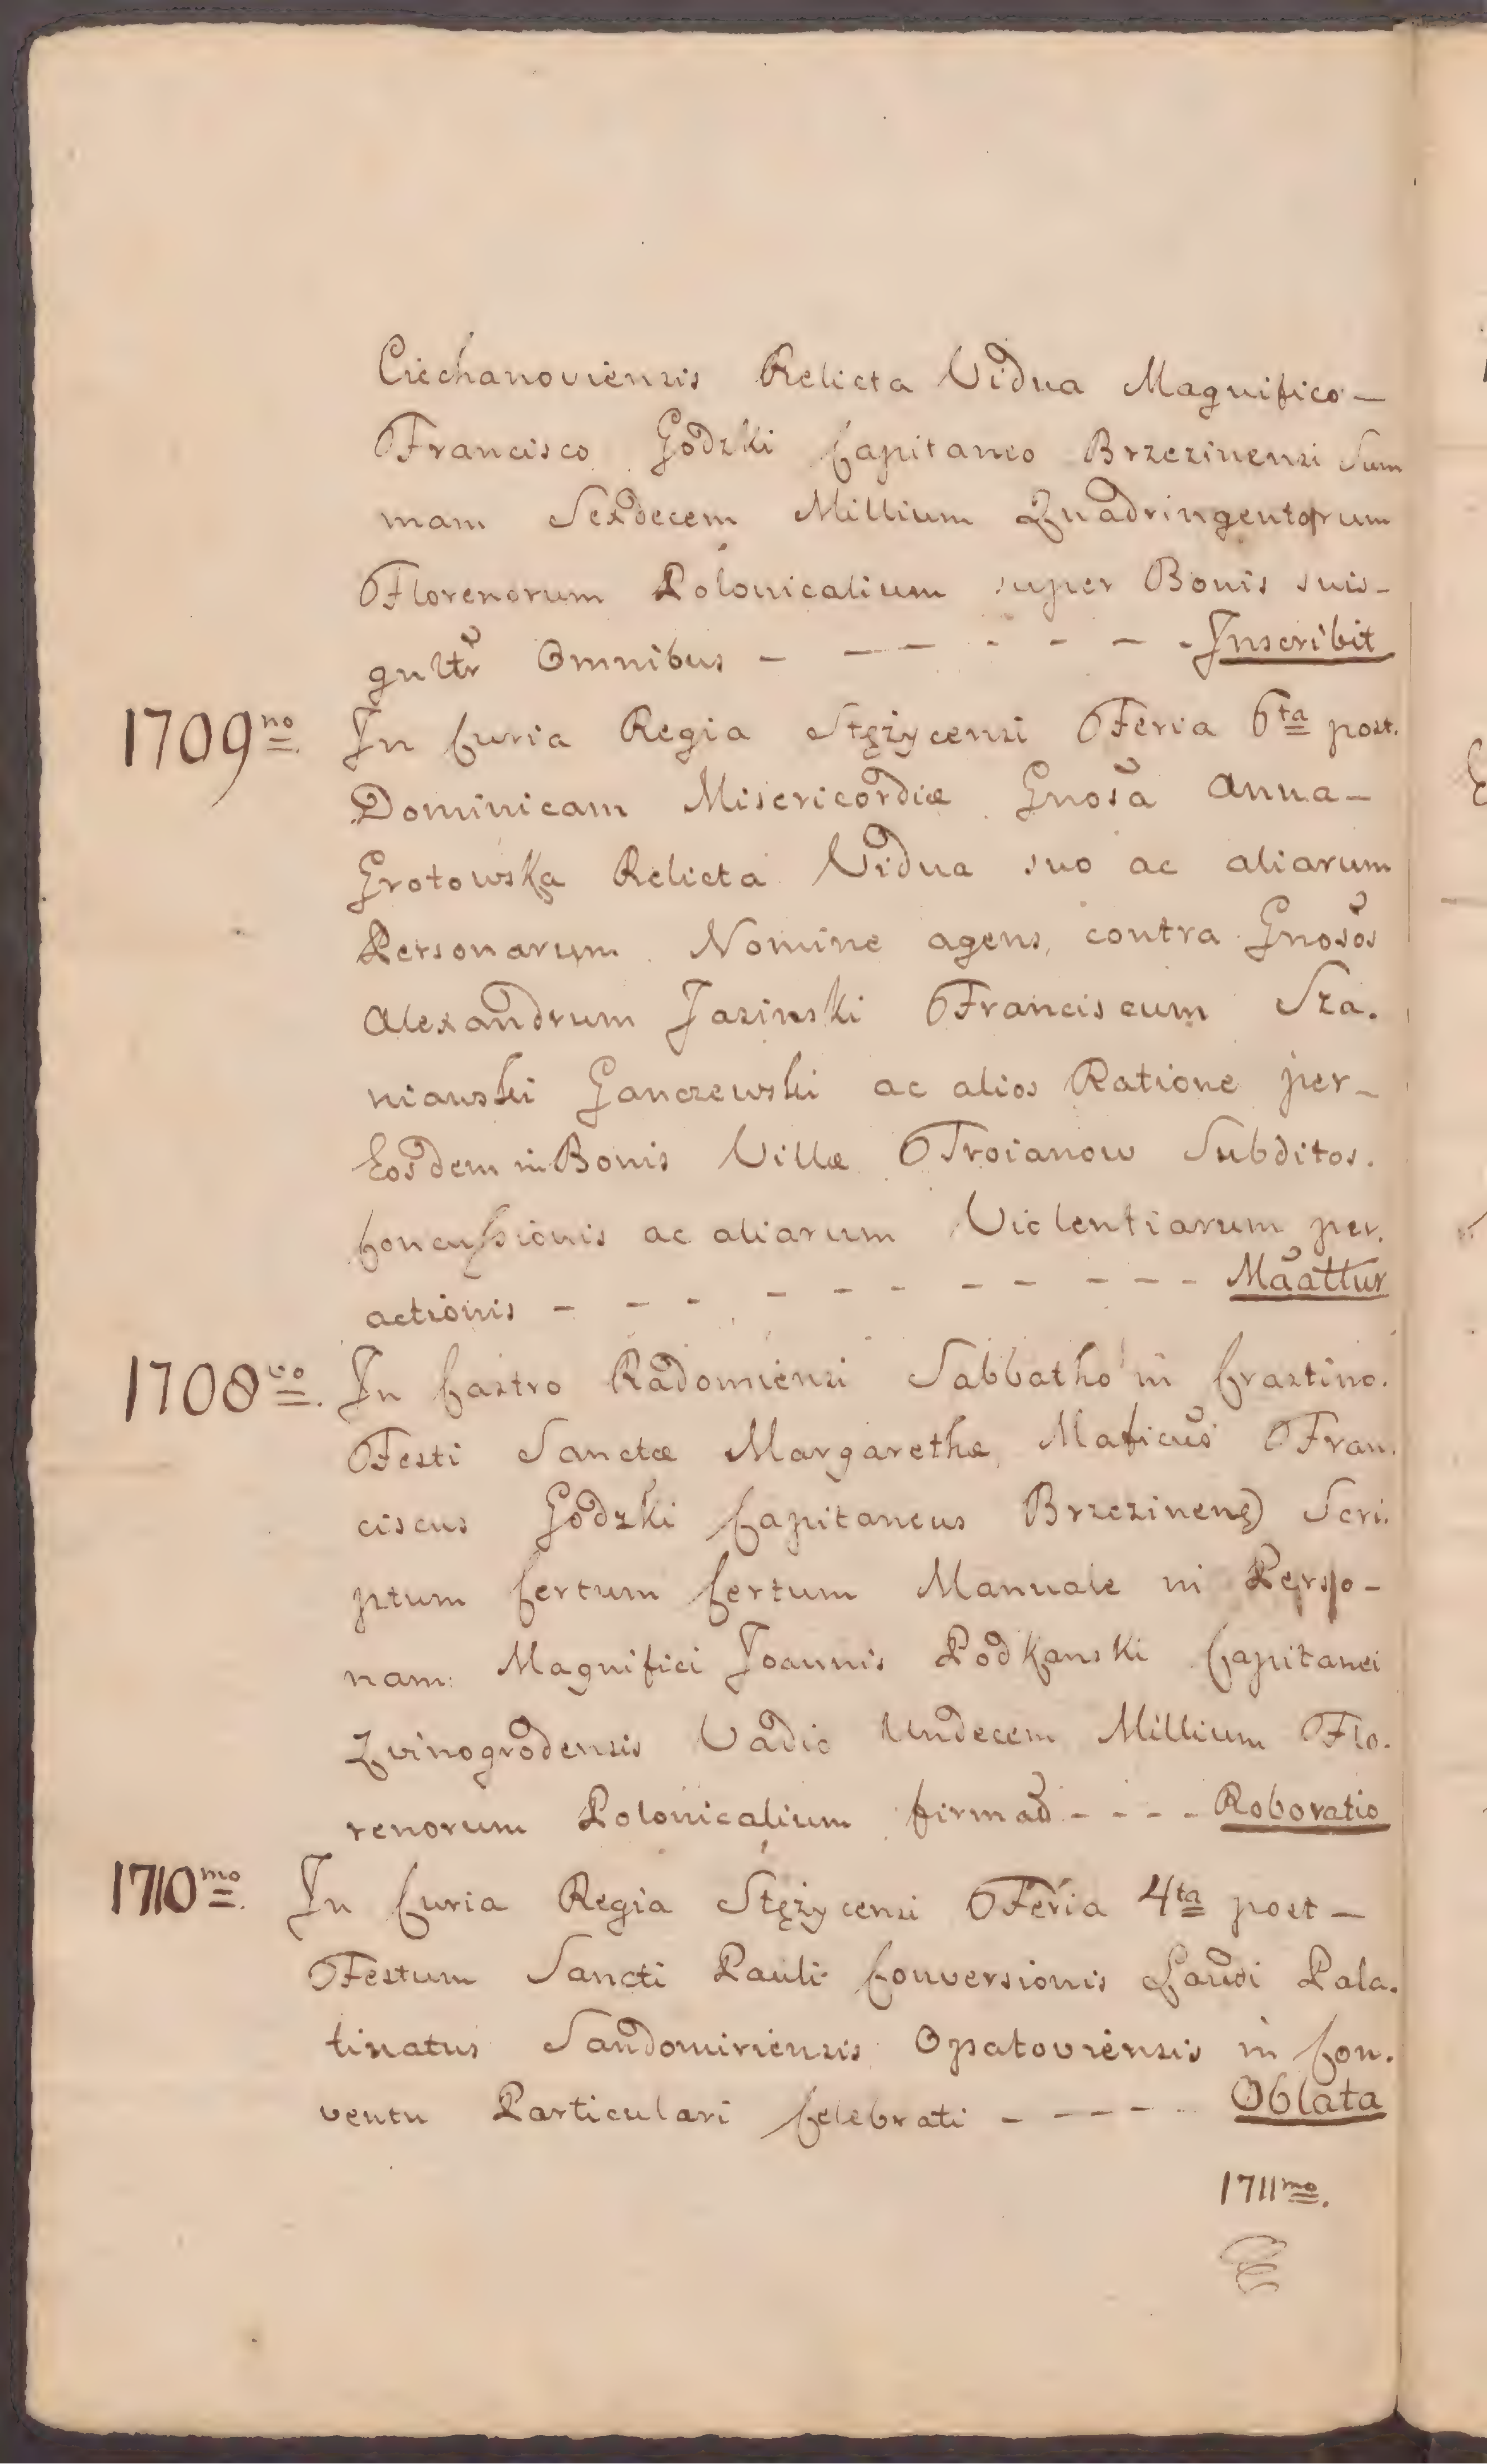 Ciechanoviensis Relicta Vidua Magnifico —
Francisco Godzki Capitaneo Brzezinensi Sum
mam Sexdecem Millium Quadringentorum
Florenorum Polonicalium super Bonis suis -
gnltr Omnibus - - - - - - - Inscribit
1709no In Curia Regia Stężycensi Feria 6ta post.
Dominicam Misericordiæ Gnosa Anna -
Grotowska Relicta Vidua suo ac aliarum
Personarum Nomine agens, contra Gnosos
Alexandrum Jasinski Franciscum Sza.
nianski Ganczewski ac alios Ratione per -
Eosdem in Bonis Villæ Troianow Subditos.
Concussionis ac aliarum Violentiarum per.
actionis - - - - - - - - - - Maattur
1708vo. In Castro Radomiensi Sabbatho in Crastino.
Festi Sanctæ Margarethæ Maficus Fran.
ciscus Godzki Capitaneus Brzezinens Scri.
ptum Certum Certum Manuale in Perso -
nam Magnifici Joannis Podkanski Capitanei
Zvinogrodensis Vadio Undecem Millium Flo.
renorum Polonicalium firmad - - - - Roboratio
1710mo. In Curia Regia Stężycensi Feria 4ta post —
Festum Sancti Pauli Conversionis Laudi Pala.
tinatus Sandomiriensis Opatoviensis in Con.
ventu Particulari Celebrati - - - - - Oblata
1711mo.